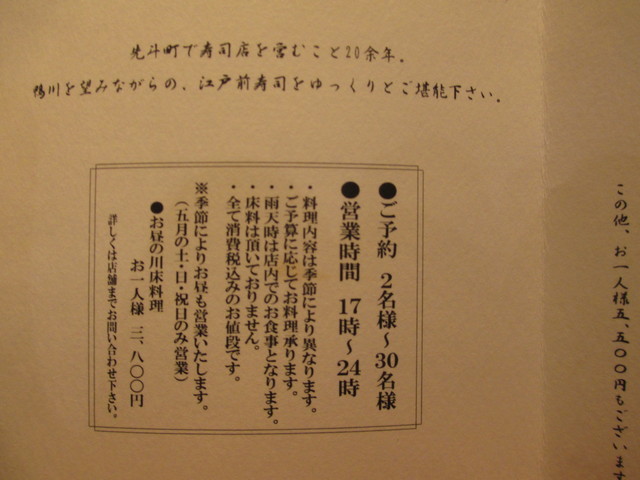 先斗町で寿司店を営むこと20余年。
鴨川を望みながらの、江戸前寿司をゆっくりとご堪能下さい。
この他、お一人様五、五〇〇円もございます
●ご予約 2名様~30名様
●営業時間 17時~24時
・料理内容は季節により異なります。
・ご予算に応じてお料理承ります。
・雨天時は店内でのお食事となります。
・床料は頂いておりません。
・全て消費税込みのお値段です。
※季節によりお昼も営業いたします。
(五月の土・日・祝日のみ営業)
●お昼の川床料理
お一人様 三、八〇〇円
詳しくは店舗までお問い合わせ下さい。